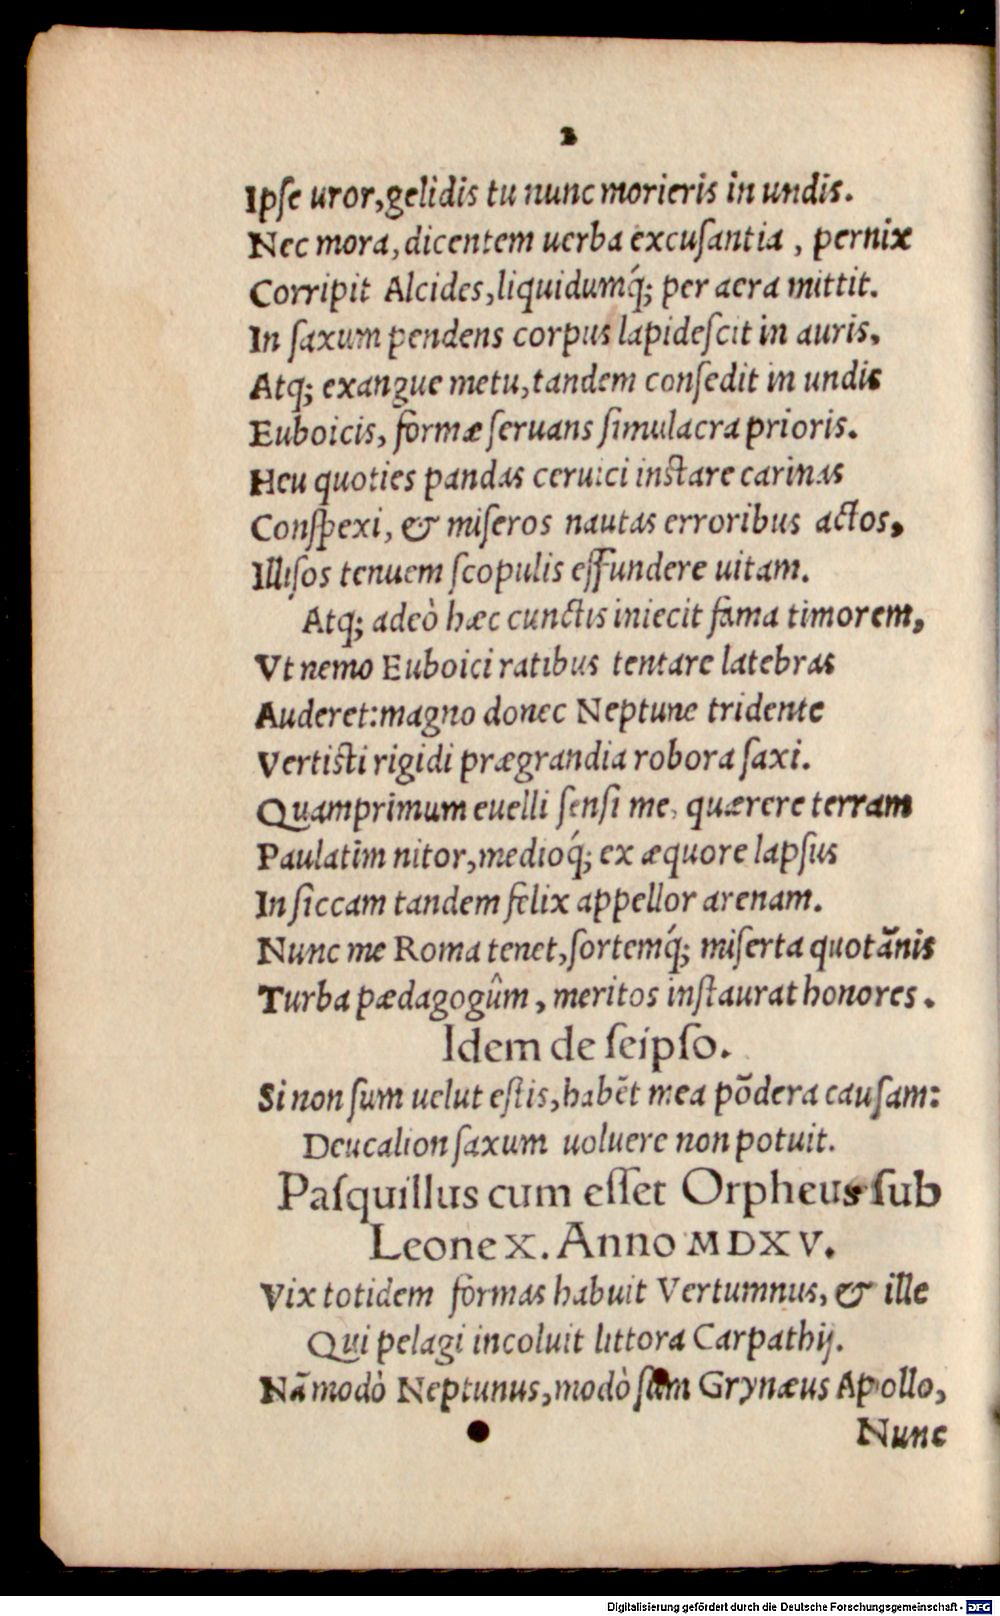 2
Ipſe uror, gelidis tu nunc morieris in undis.
Nec mora, dicentem uerba excuſantia, pernix
Corripit Alcides, liquidumq́; per aera mittit.
In ſaxum pendens corpus lapideſcit in auris,
Atq; exangue metu, tandem conſedit in undis
Euboicis, formæ ſeruans ſimulacra prioris.
Heu quoties pandas ceruici inſtare carinas
Conſpexi, & miſeros nautas erroribus actos,
Illiſos tenuem ſcopulis effundere uitam.
Atq; adeò hæc cunctis iniecit fama timorem,
Vt nemo Euboici ratibus tentare latebras
Auderet: magno donec Neptune tridente
Vertiſti rigidi prægrandia robora ſaxi.
Quamprimum euelli ſenſi me, quærere terram
Paulatim nitor, medioq́; ex æquore lapſus
In ſiccam tandem felix appellor arenam.
Nunc me Roma tenet, ſortemq́; miſerta quotãnis
Turba pædagogûm, meritos inſtaurat honores.
Idem de ſeipſo.
Si non ſum uelut eſtis, habẽt mea põdera cauſam:
Deucalion ſaxum uoluere non potuit.
Paſquillus cum eſſet Orpheus ſub
Leone X. Anno MDXV.
Vix totidem formas habuit Vertumnus, & ille
Qui pelagi incoluit littora Carpathij.
Nã modò Neptunus, modò ſum Grynæus Apollo,
Nunc
Digitalisierung gefördert durch die Deutsche Forschungsgemeinschaft - DFG